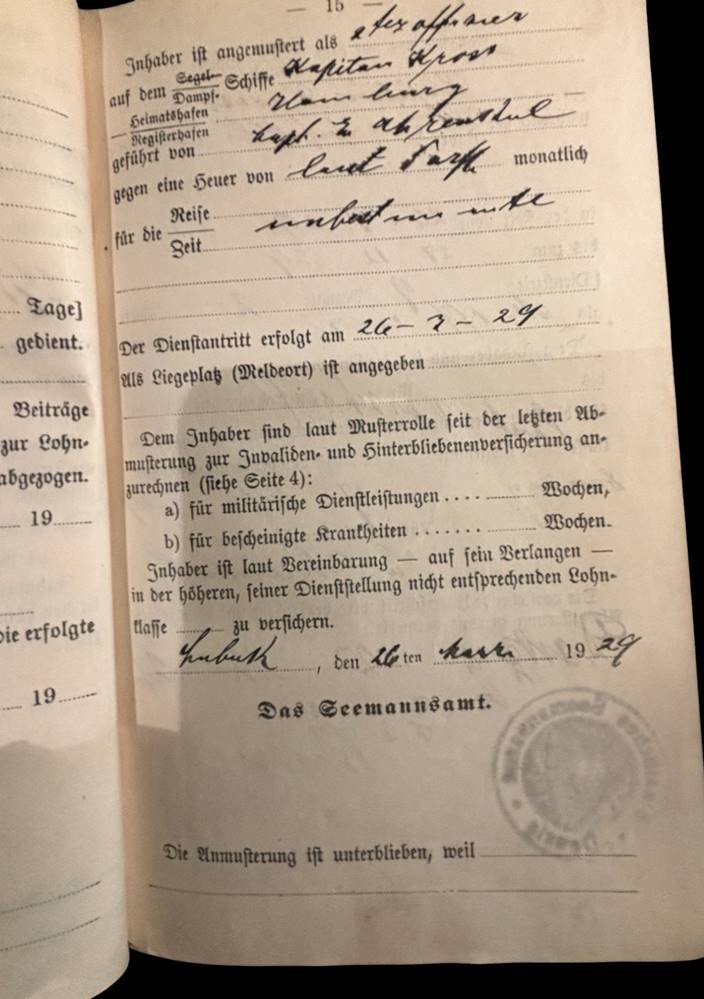 — 15 —
Inhaber ist angemustert als
auf dem Segel- Dampf- Schiffe Kapitän Kross
Heimatshafen Registerhafen Hamburg
geführt von Capt. E.
gegen eine Heuer von laut Tarif monatlich
für die Reise Zeit unbestimmte
Der Dienstantritt erfolgt am 26-3-29
Als Liegeplatz (Meldeort) ist angegeben
Dem Inhaber sind laut Musterrolle seit der letzten Ab-
musterung zur Invaliden- und Hinterbliebenenversicherung an-
zurechnen (siehe Seite 4):
a) für militärische Dienstleistungen .... Wochen,
b) für bescheinigte Krankheiten ....... Wochen.
Inhaber ist laut Vereinbarung — auf sein Verlangen —
in der höheren, seiner Dienststellung nicht entsprechenden Lohn-
klasse zu versichern.
Lübeck, den 26ten März 1929
Das Seemannsamt.
Die Anmusterung ist unterblieben, weil
Tage]
gedient.
Beiträge
zur Lohn-
abgezogen.
19
die erfolgte
19